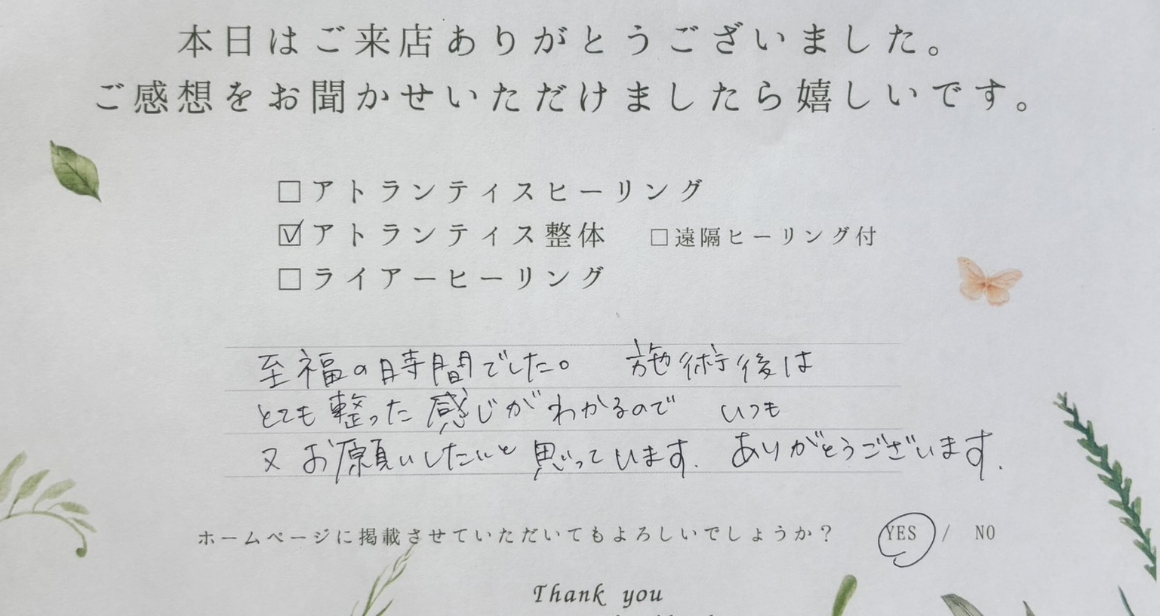 本日はご来店ありがとうございました。
ご感想をお聞かせいただけましたら嬉しいです。
□アトランティスヒーリング
☑アトランティス整体 □遠隔ヒーリング付
□ライアーヒーリング
至福の時間でした。 施術後は
とても整った感じがわかるので いつも
又お願いしたいと思っています. ありがとうございます.
ホームページに掲載させていただいてもよろしいでしょうか? YES / NO
Thank you